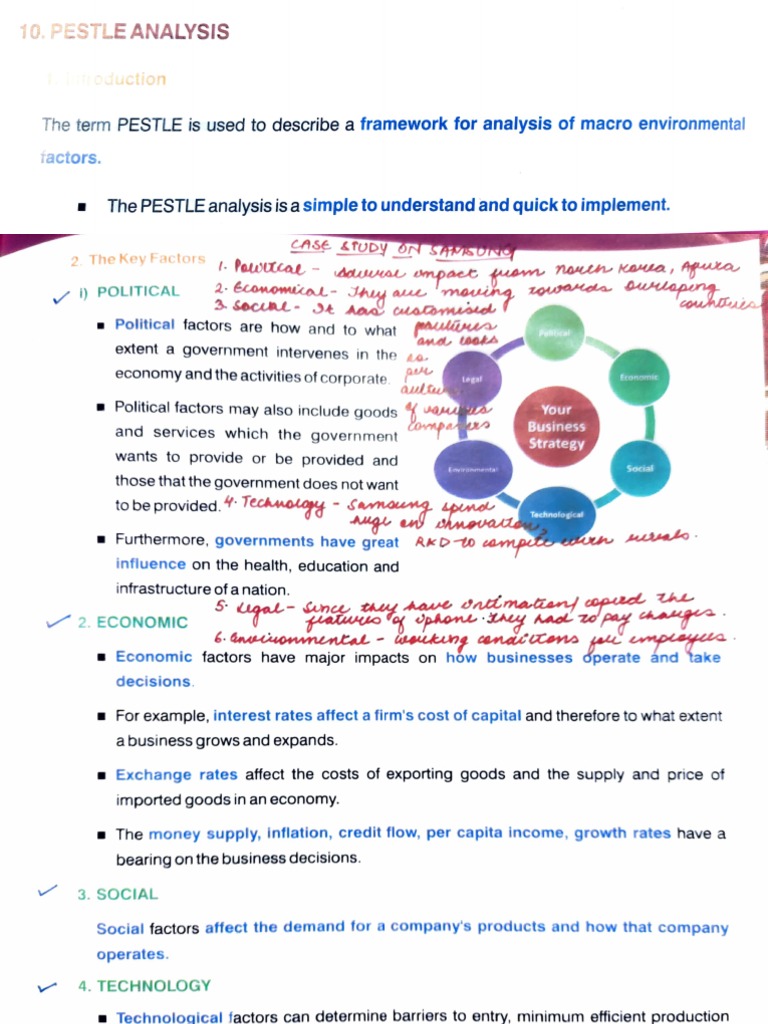 10. PESTLE ANALYSIS
1. Introduction
The term PESTLE is used to describe a framework for analysis of macro environmental
factors.
■ The PESTLE analysis is a simple to understand and quick to implement.
CASE STUDY ON SAMSUNG
2. The Key Factors
1. Political - Adverse impact from north Korea, Africa
i) POLITICAL
2. Economical - They are moving towards
countries
3. Social - It has customised
■ Political factors are how and to what
extent a government intervenes in the
economy and the activities of corporate.
and looks
as
per
culture
of various
■ Political factors may also include goods
and services which the government
wants to provide or be provided and
those that the government does not want
to be provided.
Political
Economic
Social
Technological
Environmental
Legal
Your
Business
Strategy
4. Technology - Samsung spend
huge on innovation,
R&D to compete with rivals.
■ Furthermore, governments have great
influence on the health, education and
infrastructure of a nation.
5. Legal - Since they have copied the
features of iphone. They had to pay charges.
2. ECONOMIC
6. Environmental - working conditions for employees.
■ Economic factors have major impacts on how businesses operate and take
decisions.
■ For example, interest rates affect a firm's cost of capital and therefore to what extent
a business grows and expands.
■ Exchange rates affect the costs of exporting goods and the supply and price of
imported goods in an economy.
■ The money supply, inflation, credit flow, per capita income, growth rates have a
bearing on the business decisions.
3. SOCIAL
Social factors affect the demand for a company's products and how that company
operates.
4. TECHNOLOGY
■ Technological factors can determine barriers to entry, minimum efficient production